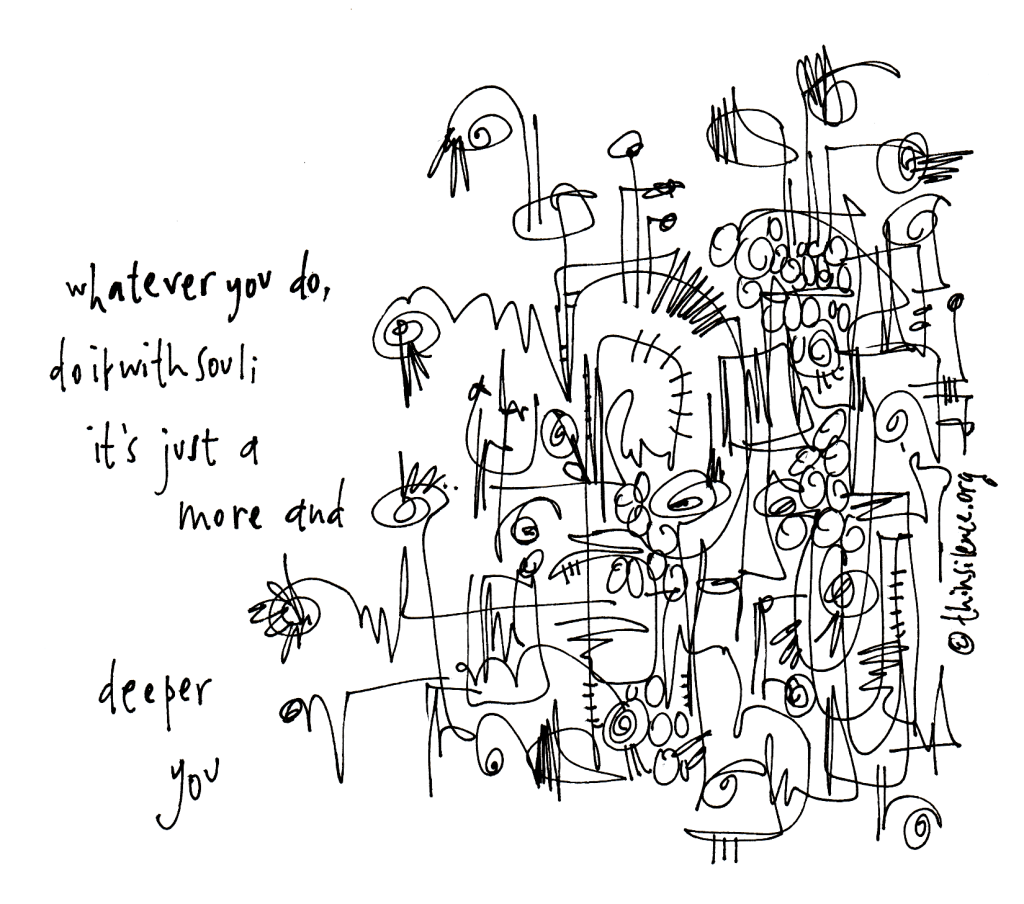 whatever you do,
do it with soul;
it's just a
more and
deeper
you
© thinsilence.org